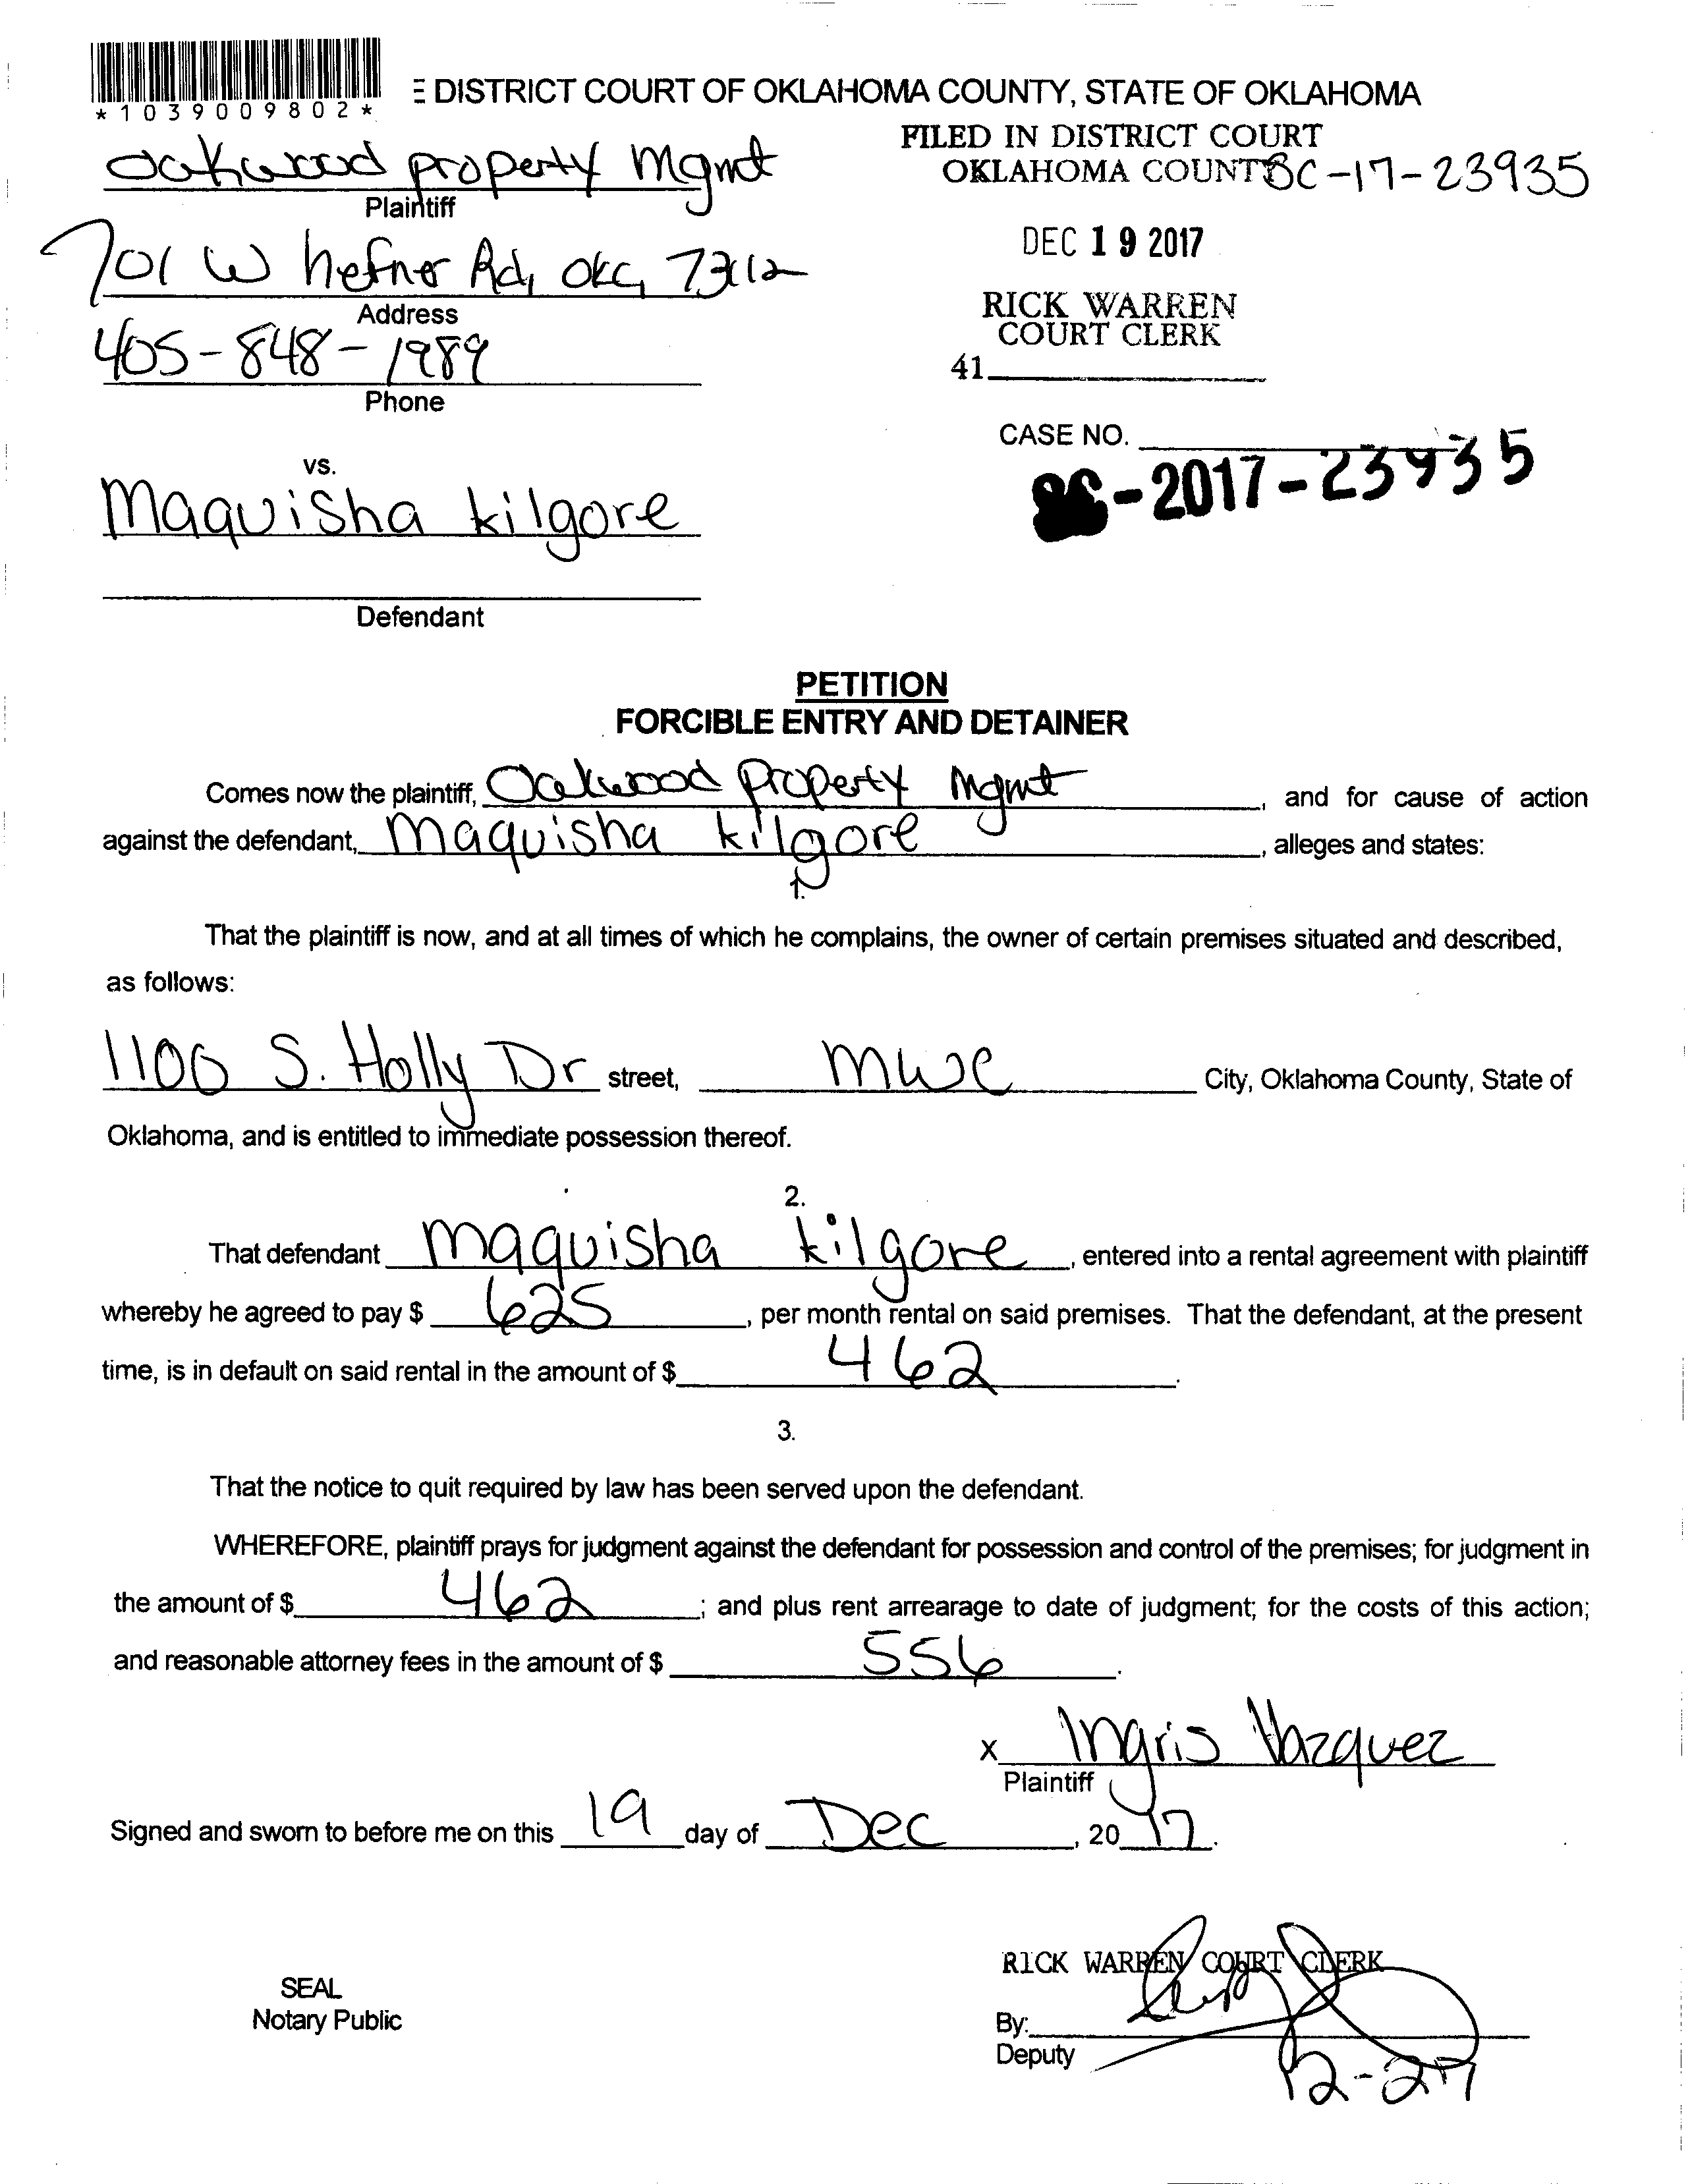 *1039009802*
E DISTRICT COURT OF OKLAHOMA COUNTY, STATE OF OKLAHOMA
FILED IN DISTRICT COURT
Oakwood property Mgmt
OKLAHOMA COUNTY SC-17-23935
Plaintiff
DEC 19 2017
701 W hefner Rd, OKC, 73112
RICK WARREN
Address
COURT CLERK
405-848-1989
41
Phone
CASE NO.
vs.
SC-2017-23935
Maquisha kilgore
Defendant
PETITION
FORCIBLE ENTRY AND DETAINER
Comes now the plaintiff, Oakwood Property Mgmt, and for cause of action
against the defendant, Maquisha kilgore, alleges and states:
1.
That the plaintiff is now, and at all times of which he complains, the owner of certain premises situated and described,
as follows:
1100 S. Holly Dr street, MWC City, Oklahoma County, State of
Oklahoma, and is entitled to immediate possession thereof.
2.
That defendant Maquisha kilgore, entered into a rental agreement with plaintiff
whereby he agreed to pay $ 625, per month rental on said premises. That the defendant, at the present
time, is in default on said rental in the amount of $ 462.
3.
That the notice to quit required by law has been served upon the defendant.
WHEREFORE, plaintiff prays for judgment against the defendant for possession and control of the premises; for judgment in
the amount of $ 462; and plus rent arrearage to date of judgment; for the costs of this action;
and reasonable attorney fees in the amount of $ 556.
x Ingris Vazquez
Plaintiff
Signed and sworn to before me on this 19 day of Dec, 2017.
RICK WARREN COURT CLERK
SEAL
Notary Public
By:
Deputy
12-27